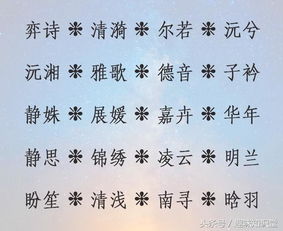 弈诗❉清漪❉尔若❉沅兮
沅湘❉雅歌❉德音❉子衿
静姝❉展媛❉嘉卉❉华年
静思❉锦绣❉凌云❉明兰
盼笙❉清浅❉南寻❉晗羽